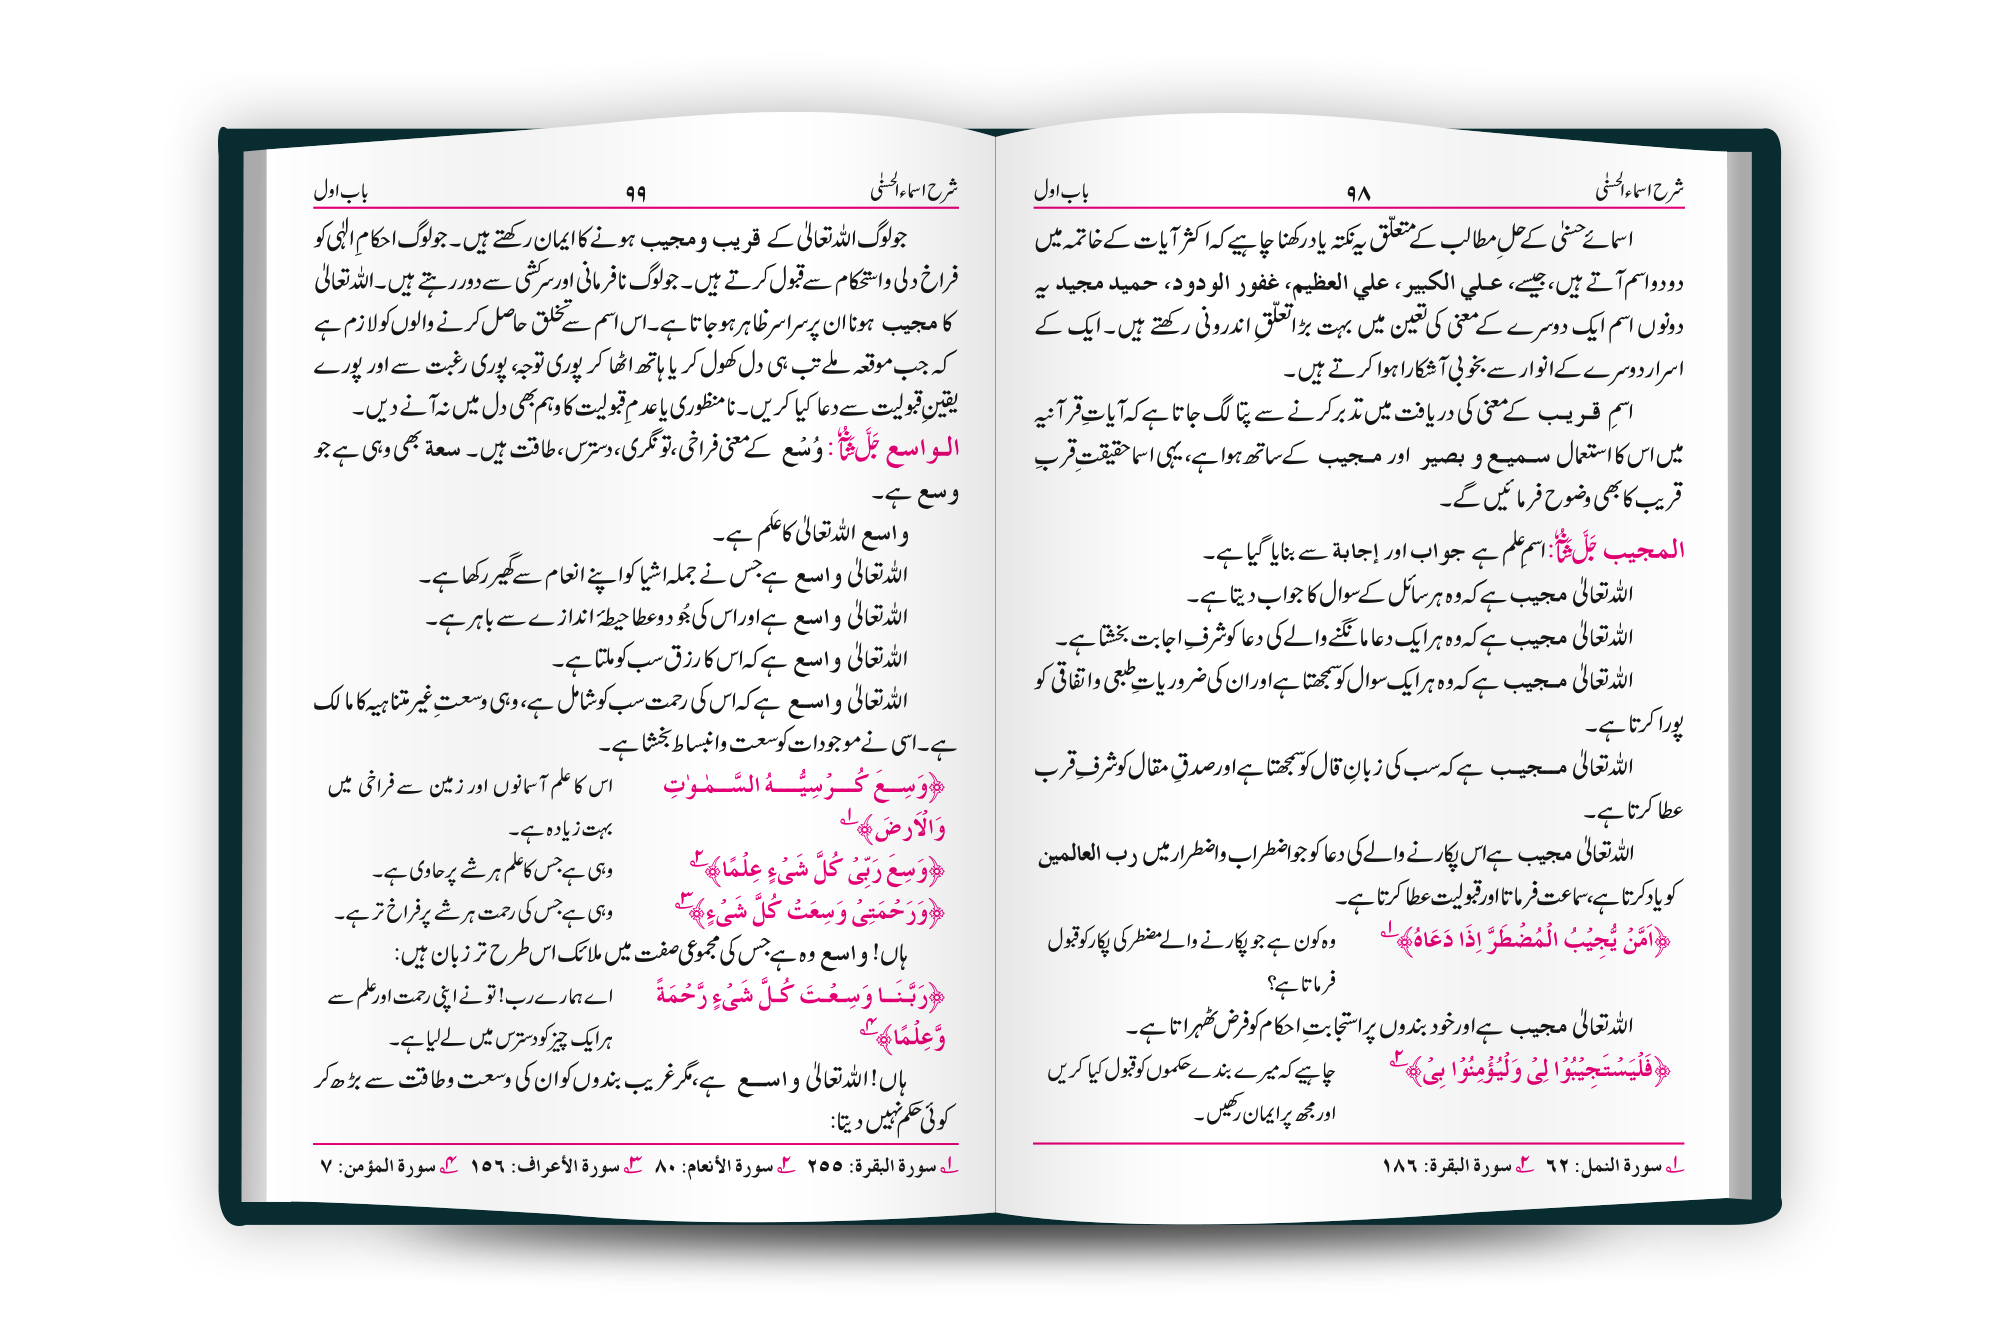 شرح اسماء الحسنٰی ۹۸ باب اول
اسمائے حسنیٰ کے حلِ مطالب کے متعلّق یہ نکتہ یاد رکھنا چاہیے کہ اکثر آیات کے خاتمہ میں
دو دو اسم آتے ہیں، جیسے، علي الكبير، علي العظيم، غفور الودود، حميد مجيد یہ
دونوں اسم ایک دوسرے کے معنی کی تعین میں بہت بڑا تعلّقِ اندرونی رکھتے ہیں۔ ایک کے
اسرار دوسرے کے انوار سے بخوبی آشکارا ہوا کرتے ہیں۔
اسمِ قریب کے معنی کی دریافت میں تدبر کرنے سے پتا لگ جاتا ہے کہ آیاتِ قرآنیہ
میں اس کا استعمال سميع و بصير اور مجیب کے ساتھ ہوا ہے، یہی اسما حقیقتِ قربِ
قریب کا بھی وضوح فرمائیں گے۔
المجيب جَلَّ شَأْنُهٗ: اسمِ علم ہے جواب اور إجابة سے بنایا گیا ہے۔
اللہ تعالیٰ مجیب ہے کہ وہ ہر سائل کے سوال کا جواب دیتا ہے۔
اللہ تعالیٰ مجیب ہے کہ وہ ہر ایک دعا مانگنے والے کی دعا کو شرفِ اجابت بخشتا ہے۔
اللہ تعالیٰ مجیب ہے کہ وہ ہر ایک سوال کو سمجھتا ہے اور ان کی ضروریاتِ طبعی و اتفاقی کو
پورا کرتا ہے۔
اللہ تعالیٰ مجیب ہے کہ سب کی زبانِ قال کو سمجھتا ہے اور صدقِ مقال کو شرفِ قرب
عطا کرتا ہے۔
اللہ تعالیٰ مجیب ہے اس پکارنے والے کی دعا کو جو اضطراب و اضطرار میں رب العالمین
کو یاد کرتا ہے، سماعت فرماتا اور قبولیت عطا کرتا ہے۔
﴿اَمَّنْ يُّجِيْبُ الْمُضْطَرَّ اِذَا دَعَاهُ﴾۱؎ وہ کون ہے جو پکارنے والے مضطر کی پکار کو قبول
فرماتا ہے؟
اللہ تعالیٰ مجیب ہے اور خود بندوں پر استجابتِ احکام کو فرض ٹھہراتا ہے۔
﴿فَلْيَسْتَجِيْبُوْا لِىْ وَلْيُؤْمِنُوْا بِىْ﴾۲؎ چاہیے کہ میرے بندے حکموں کو قبول کیا کریں
اور مجھ پر ایمان رکھیں۔
۱؎ سورة النمل: ۶۲ ۲؎ سورة البقرة: ۱۸۶
شرح اسماء الحسنٰی ۹۹ باب اول
جو لوگ اللہ تعالیٰ کے قریب و مجیب ہونے کا ایمان رکھتے ہیں۔ جو لوگ احکامِ الٰہی کو
فراخ دلی و استحکام سے قبول کرتے ہیں۔ جو لوگ نافرمانی اور سرکشی سے دور رہتے ہیں۔ اللہ تعالیٰ
کا مجیب ہونا ان پر سراسر ظاہر ہو جاتا ہے۔ اس اسم سے تخلق حاصل کرنے والوں کو لازم ہے
کہ جب موقعہ ملے تب ہی دل کھول کر یا ہاتھ اٹھا کر پوری توجہ، پوری رغبت سے اور پورے
یقینِ قبولیت سے دعا کیا کریں۔ نامنظوری یا عدمِ قبولیت کا وہم بھی دل میں نہ آنے دیں۔
الواسع جَلَّ شَأْنُهٗ: وُسْع کے معنی فراخی، تونگری، دسترس، طاقت ہیں۔ سعة بھی وہی ہے جو
وسع ہے۔
واسع اللہ تعالیٰ کا عَلَم ہے۔
اللہ تعالیٰ واسع ہے جس نے جملہ اشیا کو اپنے انعام سے گھیر رکھا ہے۔
اللہ تعالیٰ واسع ہے اور اس کی جُود و عطا حیطۂ اندازے سے باہر ہے۔
اللہ تعالیٰ واسع ہے کہ اس کا رزق سب کو ملتا ہے۔
اللہ تعالیٰ واسع ہے کہ اس کی رحمت سب کو شامل ہے، وہی وسعتِ غیر متناہیہ کا مالک
ہے۔ اسی نے موجودات کو سعت و انبساط بخشا ہے۔
﴿وَسِعَ كُرْسِيُّهُ السَّمٰوٰتِ اس کا علم آسمانوں اور زمین سے فراخی میں
وَالْاَرضَ﴾۱؎ بہت زیادہ ہے۔
﴿وَسِعَ رَبِّىْ كُلَّ شَىْءٍ عِلْمًا﴾۲؎ وہی ہے جس کا علم ہر شے پر حاوی ہے۔
﴿وَرَحْمَتِىْ وَسِعَتْ كُلَّ شَىْءٍ﴾۳؎ وہی ہے جس کی رحمت ہر شے پر فراخ تر ہے۔
ہاں! واسع وہ ہے جس کی مجموعی صفت میں ملائک اس طرح تر زبان ہیں:
﴿رَبَّنَا وَسِعْتَ كُلَّ شَىْءٍ رَّحْمَةً اے ہمارے رب! تو نے اپنی رحمت اور علم سے
وَّعِلْمًا﴾۴؎ ہر ایک چیز کو دسترس میں لے لیا ہے۔
ہاں! اللہ تعالیٰ واسع ہے، مگر غریب بندوں کو ان کی وسعت و طاقت سے بڑھ کر
کوئی حکم نہیں دیتا:
۱؎ سورة البقرة: ۲۵۵ ۲؎ سورة الأنعام: ۸۰ ۳؎ سورة الأعراف: ۱۵۶ ۴؎ سورة المؤمن: ۷